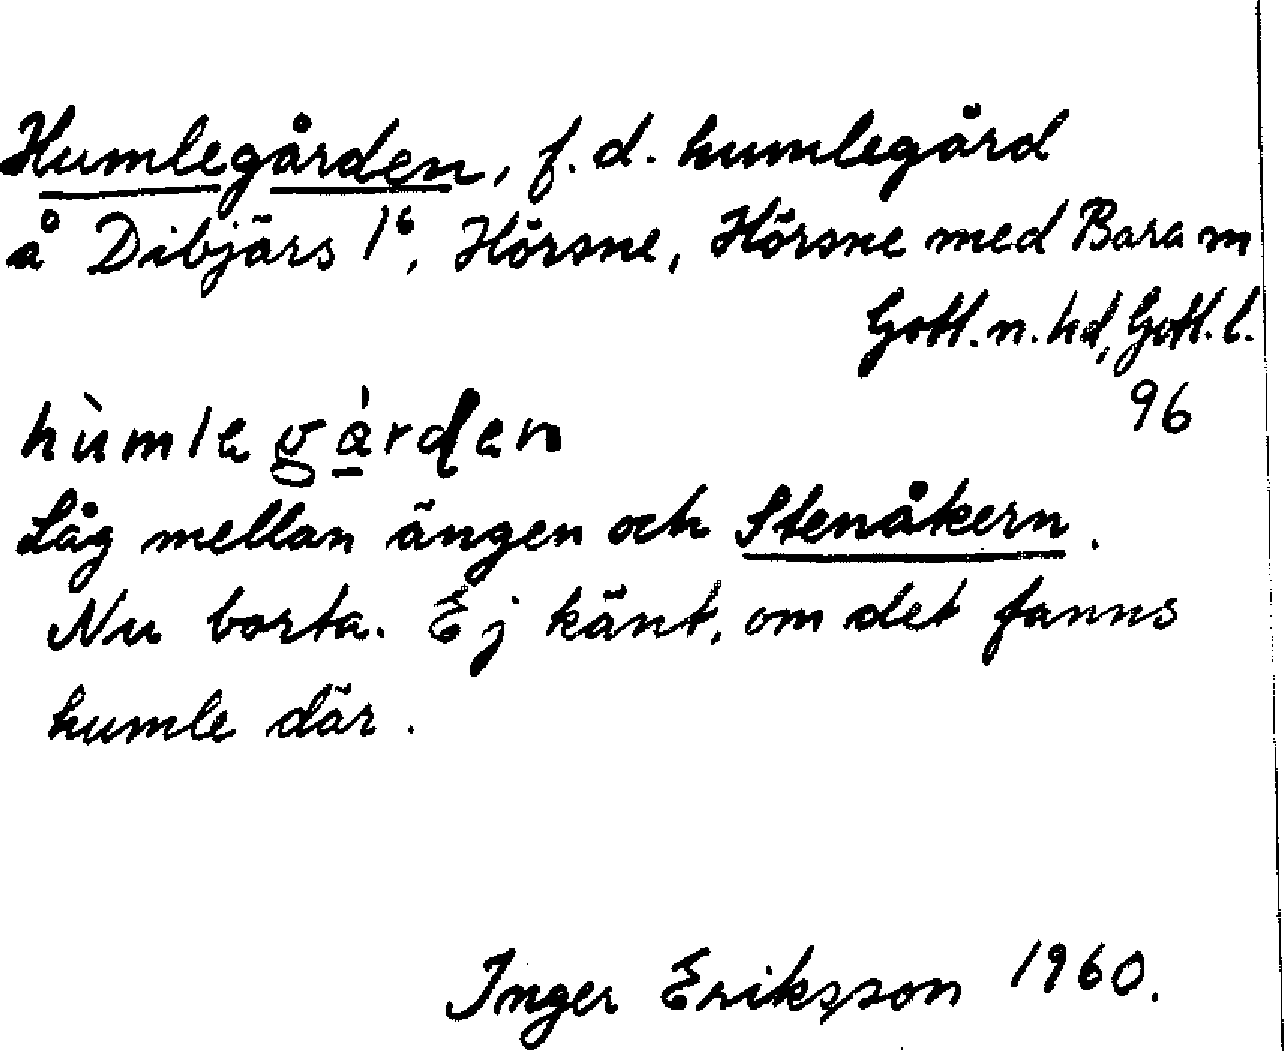 Humlegården, f.d. humlegård
å Dibjärs 1⁶, Hörsne, Hörsne med Bara m
Gotl. n. hd, Gotl. l.
96
hùmlegá̱rden
Låg mellan ängen och Stenåkern.
Nu borta. Ej känt, om det fanns
humle där.
Inger Eriksson 1960.